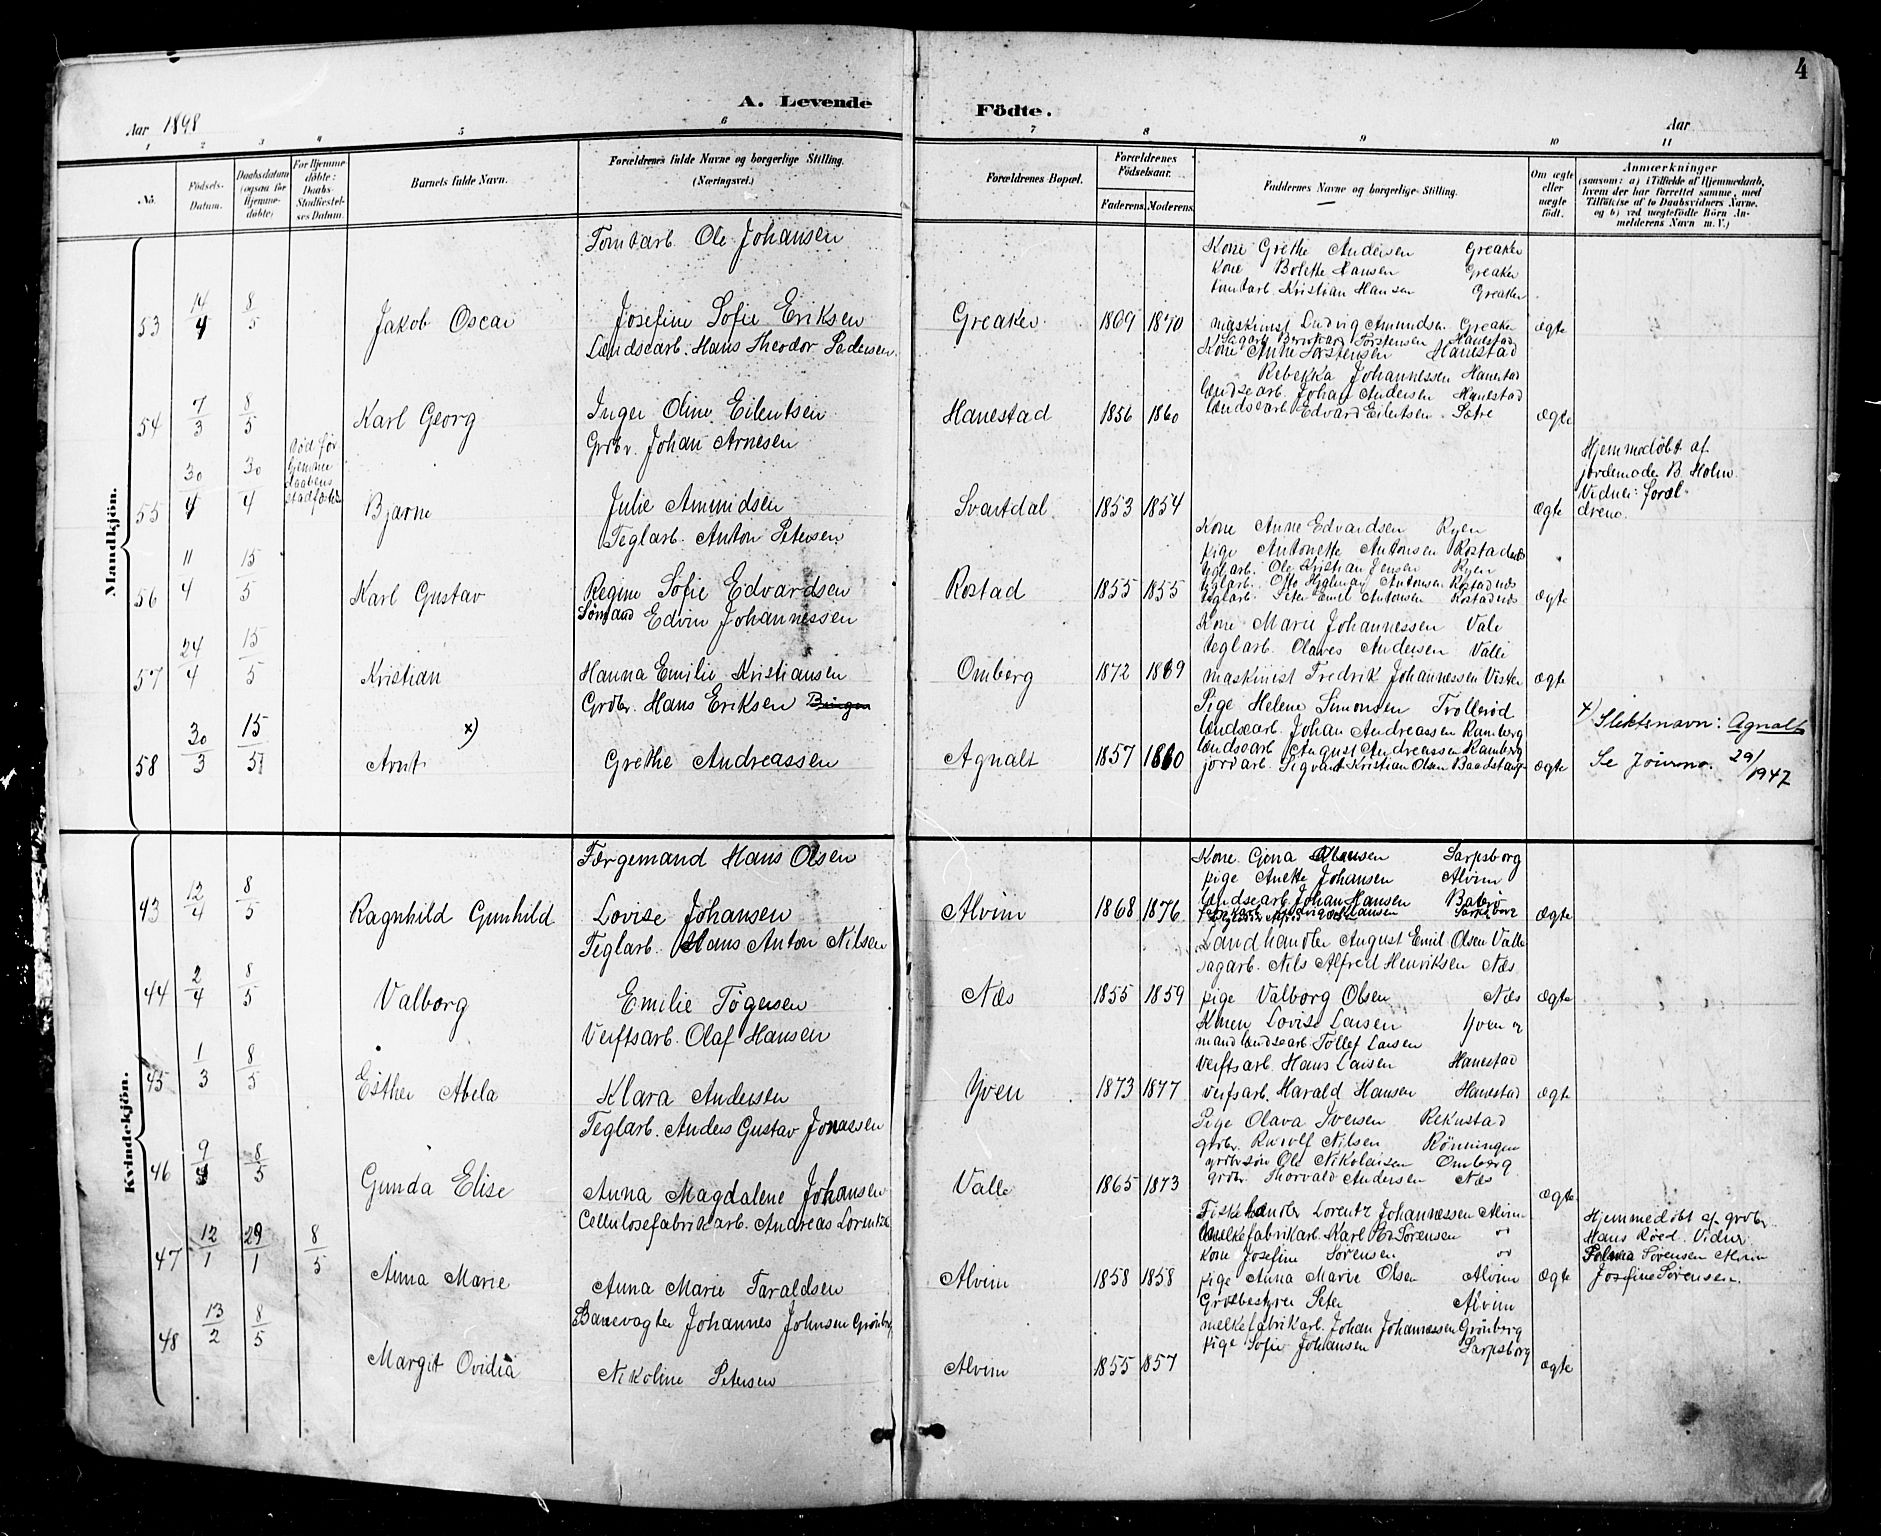 4
A. Levende Födte.
Aar 1898
Aar
1 2 3 4 5 6 7 8 9 10 11
No.
Födsels-Datum.
Daabsdatum (ogsaa for Hjemme-döbte)
For Hjemme-döbte: Daabs-Stadfæstelses Datum.
Barnets fulde Navn.
Forældrenes fulde Navne og borgerlige Stilling. (Næringsvei.)
Forældrenes Bopæl.
Forældrenes Födselsaar.
Faderens. Moderens.
Faddernes Navne og borgerlige Stilling.
Om ægte eller uægte födt.
Anmærkninger
(saasom: a) i Tilfælde af Hjemmedaab, hvem der har forrettet samme, med Tilföielse af to Daabsvidners Navne. og b) ved uægtefödte Börn Anmelderens Navn m. V.)
Mandkjön.
53 14/4 8/5 Jakob Oscar
Tomtarb. Ole Johansen
Josefine Sofie Eriksen
Greaker 1869 1870
Kone Grethe Andersen Greaker
Kone Bolette Hansen Greaker
tomtarb. Kristian Hansen Greaker
maskinist Ludvig Amundsen Greaker
ægte
54 7/3 8/5 Karl Georg
Lændsearb. Hans Theodor Pedersen
Inger Oline Eilertsen
Hanestad 1856 1860
Kone Anne Torstensen Hanestad
Rebekka Johannessen Hanestad
lændsearb. Johan Andersen Hanestad
lændsearb. Edvard Eilertsen
ægte
55 30/4 30/4
död för
Hjemme
daabens
stadfæstelse
Bjarne
Grdbr. Johan Arnesen
Julie Amundsen
Svartdal 1853 1854
ægte
Hjemmedøbt af
jordemoder B. Holm.
Vidner: foræl-
drene.
56 11/4 15/5 Karl Gustav
Teglarb. Anton Petersen
Regine Sofie Edvardsen
Rostad 1855 1855
Kone Anne Edvardsen Ryen
pige Antonette Antonsen Rostadnes
teglarb. Ole Kristian Jensen Ryen
teglarb. Otto Hjalmar Antonsen Rostadnes
teglarb. Peter Emil Antonsen Rostadnes
ægte
57 24/4 15/5 Kristian
Sömand Edvin Johannessen
Hanna Emilie Kristiansen
Omberg 1872 1869
Kone Marie Johannessen Vale
teglarb. Olaves Andersen Valle
maskinist Fredrik Johannessen Vister
ægte
58 30/3 15/5 Arnt x)
Grdbr. Hans Eriksen
Grethe Andreassen
Agnalt 1857 1860
Pige Helene Simonsen Trollerød
lændsearb. Johan Andreassen Ramberg
lændsearb. August Andreassen Ramberg
jordarb. Sigvart Kristian Olsen
ægte
x) Slektsnavn: Agnalt
Se Journo. 29/1947
Kvindekjön.
43 12/4 8/5 Ragnhild Gunhild
Færgemand Hans Olsen
Lovise Johansen
Alvim 1868 1876
Kone Gina Sarpsborg
pige Anette Johansen Alvim
lændsearb. Johan Hansen
ægte
44 2/4 8/5 Valborg
Teglarb. Hans Anton Nilsen
Emilie Tøgersen
Næs 1855 1859
Landhandler August Emil Olsen Valle
sagarb. Nils Alfred Henriksen Næs
pige Valborg Olsen Næs
ægte
45 1/3 8/5 Esther Abela
Verftsarb. Olaf Hansen
Klara Andersen
Yven 1873 1877
Konen Lovise Larsen Yven og
mand lændsearb. Tollef Larsen
Verftsarb. Hans Larsen Hanestad
verfsarb. Harald Hansen Hanestad
ægte
46 9/4 8/5 Gunda Elise
Teglarb. Anders Gustav Jonassen
Anna Magdalene Johansen
Valle 1865 1873
Pige Olava Iversen Rekustad
grdbr. Rudolf Nilsen Rönningen
grdbrsøn Ole Nikolaisen Omberg
grdbr. Thorvald Andersen Næs
ægte
47 12/1 29/1 8/5 Anna Marie
Cellulosefabrikarb. Andreas Lorentz.
Anna Marie Taraldsen
Alvim 1858 1858
Fiskehandler Lorentz Johannessen Alvim
melkefabrikarb. Karl Sørensen
Kone Josefine Sørensen
pige Anna Marie Olsen Alvim
ægte
Hjemmedøbt af grdbr.
Hans Røed. Vidner
Sørensen Alvim
Josefine Sørensen.
48 13/2 8/5 Margit Ovidia
Banevagter Johannes Johnsen Grönberg
Nikoline Petersen
Alvim 1855 1857
Grdbestyrer Peter Alvim
melkefabrikarb. Johan Johannessen Grönberg
pige Sofie Johansen Sarpsborg
ægte